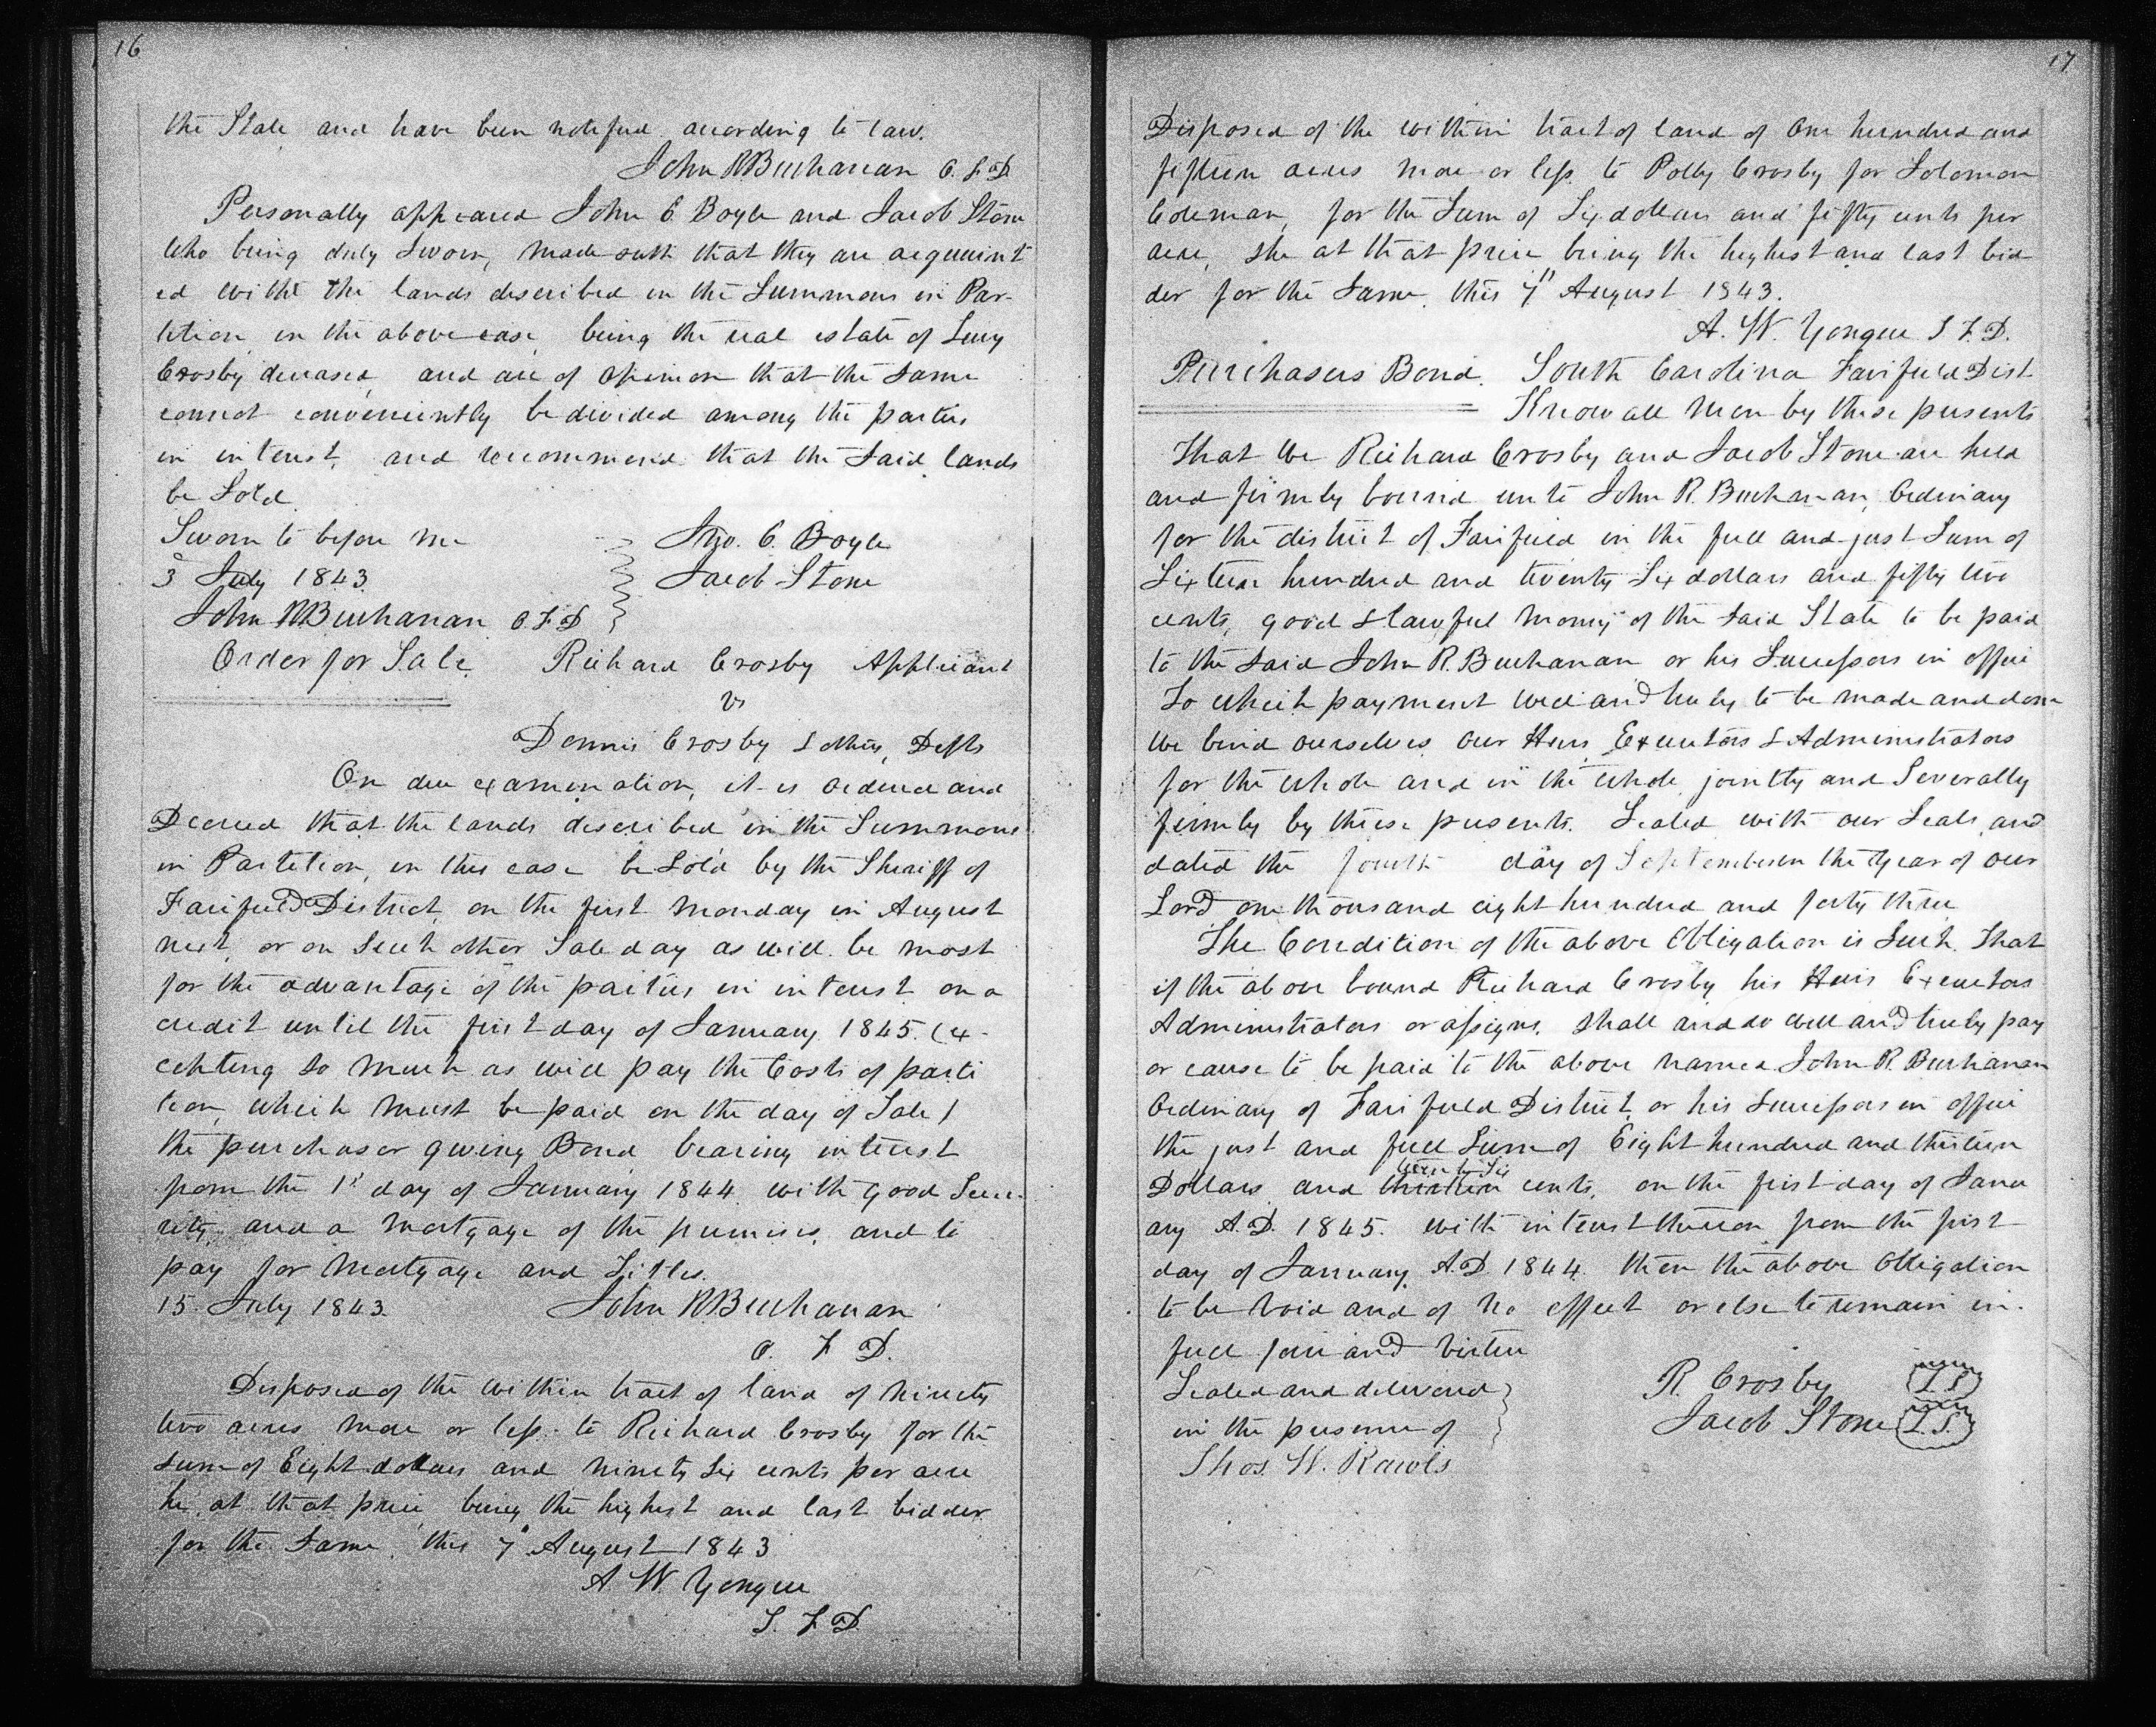 16
the State and have been notified according to law.
John R Buchanan O. F. D
Personally appeared John C Boyle and Jacob Stone
who being duly Sworn, made oath that they are acquaint
ed with the lands described in the Summons in Par-
tition in the above case, being the real estate of
Crosby deceased, and are of opinion that the same
cannot conveniently be divided among the parties
in interest, and recommend that the Said lands
be Sold.
Sworn to before me
3 July 1843
John R Buchanan O. F. D
Jno. C. Boyle
Jacob Stone
Order for Sale. Richard Crosby Applicant
vs
Dennis Crosby & others, Defts
On due examination, it is ordered and
Decreed that the lands described in the Summons
in Partition, in this case be Sold by the Sheriff of
Fairfield District, on the first Monday in August
next, or on Such other Sale day as will be most
for the advantage of the parties in interest on a
credit until the first day of January 1845. (ex-
cepting so much as will pay the Costs of parti
tion, which must be paid on the day of Sale)
the purchaser giving Bond bearing interest
from the 1st day of January 1844 with good Secu-
rity, and a Mortgage of the premises, and to
pay for Mortgage and Titles.
15. July 1843. John R Buchanan
O. F. D.
Disposed of the within tract of land of Ninety
two acres more or less to Richard Crosby for the
sum of Eight dollars and ninety Six cents per acre
he, at that price, being the highest and last bidder
for the Same, this 7" August 1843
A W Yongue
S. F. D
17
Disposed of the within tract of land of One hundred and
fifteen acres more or less to Polly Crosby for Solomon
Coleman, for the Sum of Six dollars and fifty cents per
acre, She at that price being the highest and last bid
der for the Same, this 7" August 1843.
A. W. Yongue S F. D.
Purchasers Bond. South Carolina Fairfield Dist
Know all Men by these presents
That We Richard Crosby and Jacob Stone are held
and firmly bound unto John R. Buchanan, Ordinary
for the district of Fairfield in the full and just Sum of
Sixteen hundred and twenty Six dollars and fifty two
cents, good & lawful money of the Said State to be paid
to the Said John R. Buchanan or his Successors in office
To which payment well and truly to be made and done
We bind ourselves our Heirs, Executors & Administrators
for the whole and in the whole, jointly and Severally
firmly by these presents. Sealed with our Seals, and
dated the fourth day of September in the Year of our
Lord one thousand eight hundred and forty three
The Condition of the above Obligation is Such. That
if the above bound Richard Crosby his Heirs Executors
Administrators or assigns, Shall and do well and truly pay
or cause to be paid to the above named John R. Buchanan
Ordinary of Fairfield District, or his Successors in office
the just and full Sum of Eight hundred and thirteen
twenty Six
Dollars and thirteen cents, on the first day of Janu
ary A.D. 1845. with interest thereon from the first
day of January, A.D 1844. then the above Obligation
to be Void and of no effect or else to remain in
full force and Virtue
Sealed and delivered
in the presence of
Thos. W. Rawls
R. Crosby L S
Jacob Stone L. S.